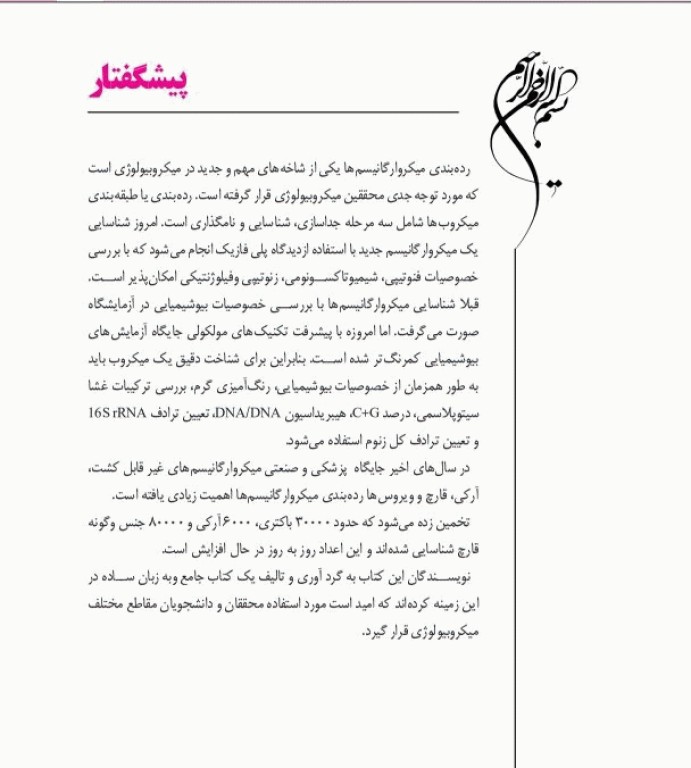 بسم الله الرحمن الرحیم
پیشگفتار
رده‌بندی میکروارگانیسم‌ها یکی از شاخه‌های مهم و جدید در میکروبیولوژی است
که مورد توجه جدی محققین میکروبیولوژی قرار گرفته است. رده‌بندی یا طبقه‌بندی
میکروب‌ها شامل سه مرحله جداسازی، شناسایی و نامگذاری است. امروز شناسایی
یک میکروارگانیسم جدید با استفاده ازدیدگاه پلی فازیک انجام می‌شود که با بررسی
خصوصیات فنوتیپی، شیمیوتاکسونومی، ژنوتیپی وفیلوژنتیکی امکان‌پذیر است.
قبلا شناسایی میکروارگانیسم‌ها با بررسی خصوصیات بیوشیمیایی در آزمایشگاه
صورت می‌گرفت. اما امروزه با پیشرفت تکنیک‌های مولکولی جایگاه آزمایش‌های
بیوشیمیایی کمرنگ‌تر شده است. بنابراین برای شناخت دقیق یک میکروب باید
به طور همزمان از خصوصیات بیوشیمیایی، رنگ‌آمیزی گرم، بررسی ترکیبات غشا
سیتوپلاسمی، درصد C+G، هیبریداسیون DNA/DNA، تعیین ترادف 16S rRNA
و تعیین ترادف کل ژنوم استفاده می‌شود.
در سال‌های اخیر جایگاه پزشکی و صنعتی میکروارگانیسم‌های غیر قابل کشت،
آرکی، قارچ و ویروس‌ها رده‌بندی میکروارگانیسم‌ها اهمیت زیادی یافته است.
تخمین زده می‌شود که حدود ۳۰۰۰۰ باکتری، ۶۰۰۰آرکی و ۸۰۰۰۰ جنس وگونه
قارچ شناسایی شده‌اند و این اعداد روز به روز در حال افزایش است.
نویسندگان این کتاب به گرد آوری و تالیف یک کتاب جامع وبه زبان ساده در
این زمینه کرده‌اند که امید است مورد استفاده محققان و دانشجویان مقاطع مختلف
میکروبیولوژی قرار گیرد.